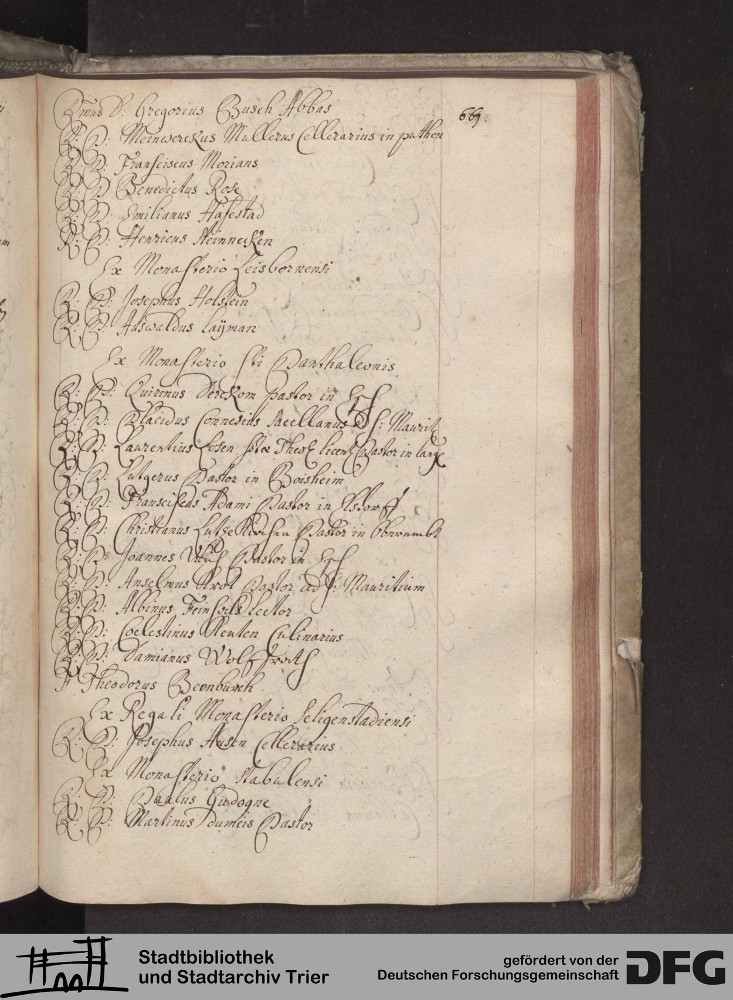 Rmus D: Gregorius Busch Abbas
669.
R: P: Meinwerckus Mullerus Cellerarius in puthen
R: P: Franciscus Morians
R: P: Benedictus Rose
R: P: Emilianus Hafestad
R: P: Henricus Steinnecken
Ex Monasterio Leisbornensi
R: P: Josephus Holstein
R: P: Auswaldus Laÿman
Ex Monasterio Sti Panthaleonis
R: P: Quirinus Derckom pastor in
R: P: Placidus Connesius Sacellanus S: Maurit
R: P: Laurentius Esen licent Pastor in
R: P: Lutgerus Pastor in Boisheim
R: P: Franciscus Adami Pastor in Esstorff
R: P: Christianus Lutzekirchen Pastor in
R: P: Joannes Pastor in
R: P: Anselmus Krot Pastor ad S: Mauritium
R: P: Albinus Lector
R: P: Coelestinus Renten Culinarius
R: P: Damianus Wolffrath
Fr Theodorus Beonburch
Ex Regali Monasterio Seligenstadiensi
R: P: Josephus Ausen Cellerarius
Ex Monasterio Stabulensi
R: P: Paulus Gudogne
R: P: Martinus dumeis Pastor
Stadtbibliothek
und Stadtarchiv Trier
gefördert von der
Deutschen Forschungsgemeinschaft
DFG